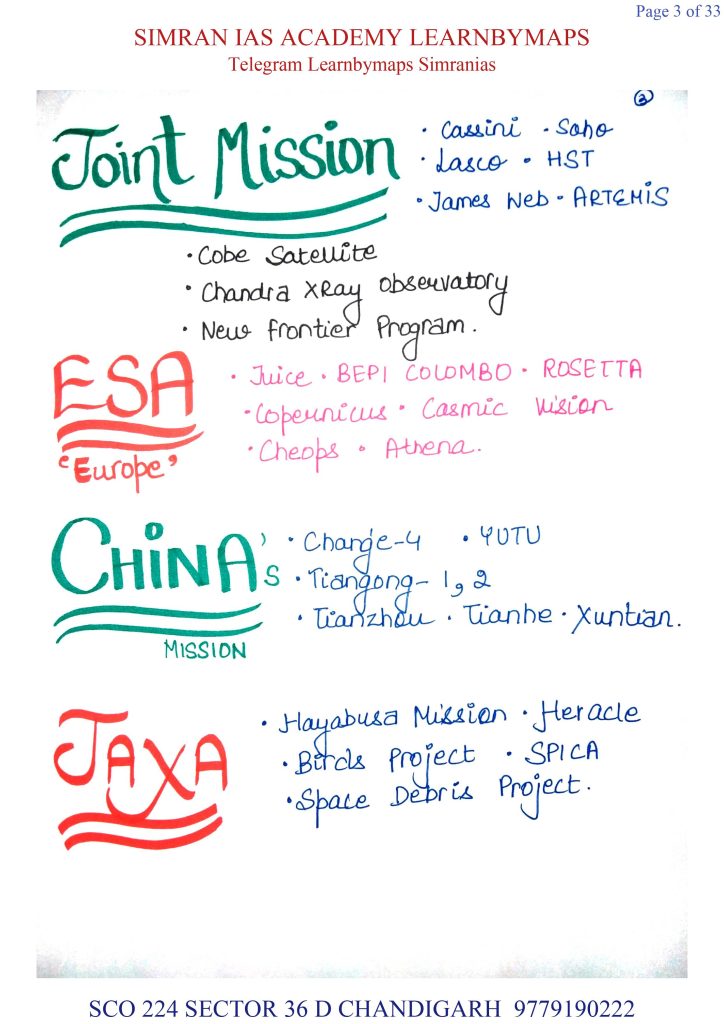 Page 3 of 33
SIMRAN IAS ACADEMY LEARNBYMAPS
Telegram Learnbymaps Simranias
2
Joint Mission
• Cassini • Soho
• Lasco • HST
• James Web • ARTEMIS
• Cobe Satellite
• Chandra XRay Observatory
• New Frontier Program.
ESA
'Europe'
• Juice • BEPI COLOMBO • ROSETTA
• Copernicus • Cosmic Vision
• Cheops • Athena.
CHINA's
MISSION
• Chang'e-4 • YUTU
• Tiangong- 1,2
• Tianzhou • Tianhe • Xuntian.
JAXA
• Hayabusa Mission • Heracle
• Birds Project • SPICA
• Space Debris Project.
SCO 224 SECTOR 36 D CHANDIGARH 9779190222